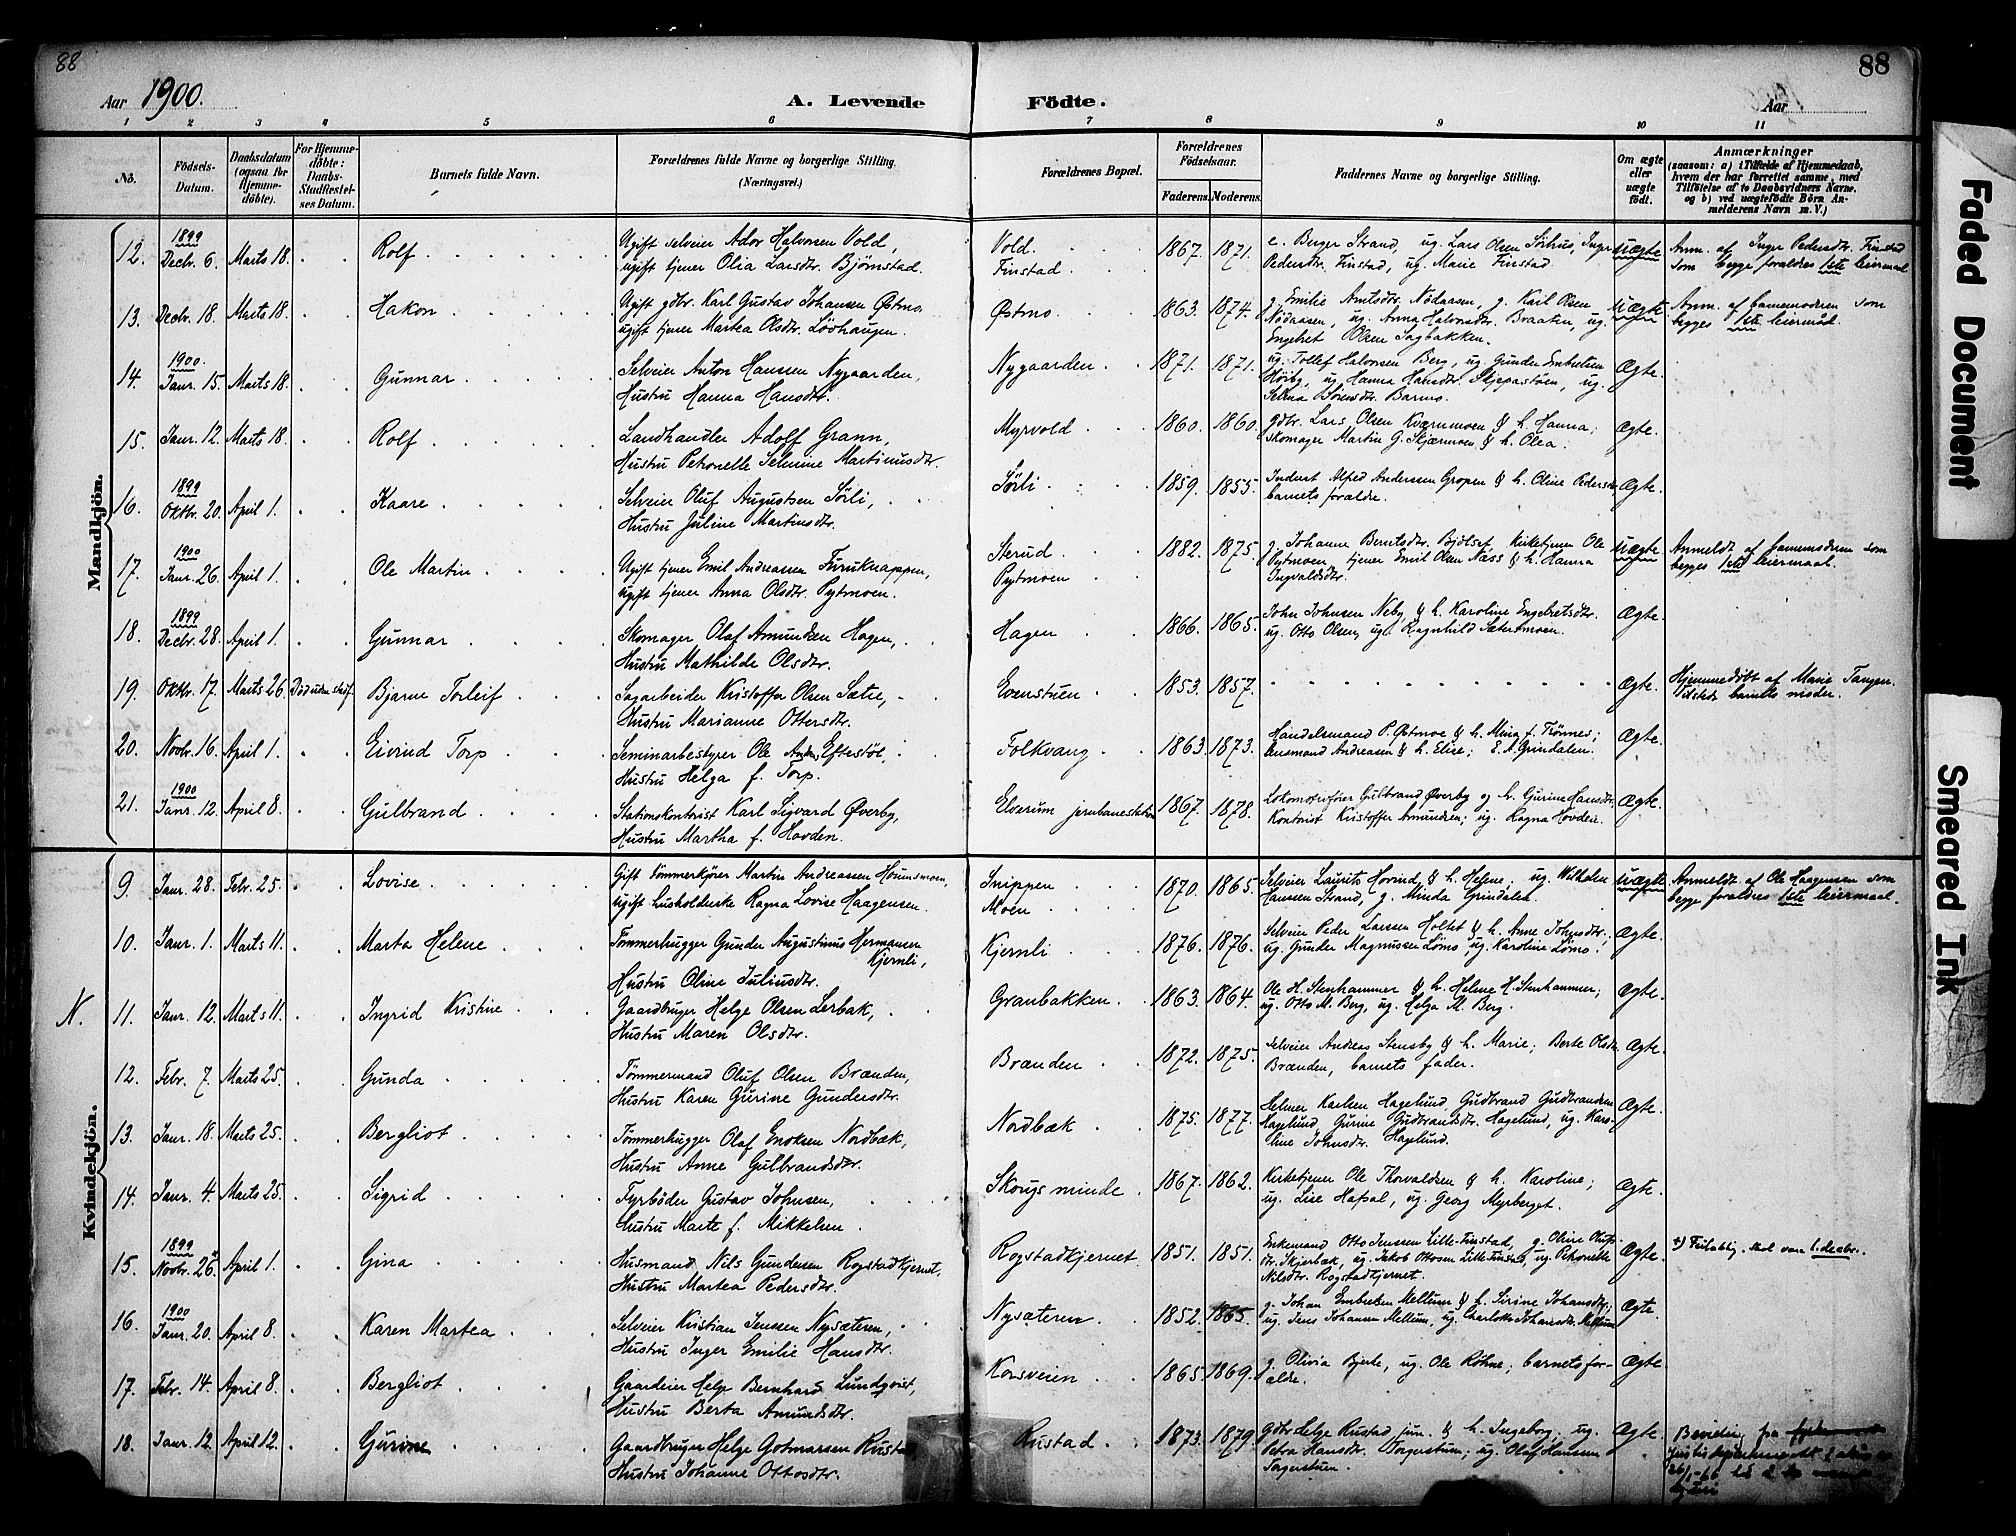 88
88
Aar 1900.
A. Levende
Fødte.
Aar
1 2 3 4 5 6 7 8 9 10 11
No.
Fødsels-Datum.
Daabsdatum (ogsaa for Hjemmedøbte).
For Hjemmedøbte: Daabs-Stadfæstelses Datum.
Barnets fulde Navn.
Forældrenes fulde Navne og borgerlige Stilling.
(Næringsvei.)
Forældrenes Bopæl.
Forældrenes Fødselsaar.
Faderens. Moderens.
Faddernes Navne og borgerlige Stilling.
Om ægte eller uægte født.
Anmærkninger
(saasom: a) i Tilfælde af Hjemmedaab, hvem der har forrettet samme, med Tilføielse af to Daabsvidners Navne, og b) ved uægtefødte Børn Anmelderens Navn m. V.)
Mandkjön.
12. 1899 Decbr. 6. Marts 18. Rolf Ugift selveier Ador Halvorsen Vold, ugift tjener Olia Larsdtr. Bjørnstad. Vold. Finstad. 1867. 1871. e. Berger Strand, ug. Lars Olsen Sörhus, Inger Pedersdtr. Finstad, ug. Marie Finstad. Uægte Anm. af Inger Pedersdtr. Finstad som begge forældres 1ste leiermaal
13. Decbr. 18. Marts 18. Hakon Ugift gdbr. Karl Gustav Johansen Østmo, ugift tjener Martea Olsdtr. Lövhaugen. Østmo. 1863. 1874. g. Emilie Amtsdtr. Nødaasen, g. Karl Olsen Nødaasen, ug. Anna Halvorsdtr. Braaten, ug. Engebret Olsen Sagbakken. Uægte Anm. af barnemoderen som begges 1ste leiermaal.
14. 1900. Janr. 15. Marts 18. Gunnar Selveier Anton Hanssen Nygaarden, Hustru Hanna Hansdtr. Nygaarden 1871. 1871. ug. Tollef Halvorsen Berg, ug. Gunder Embretsen Höiby, ug. Hanna Hansdtr. Skjepastuen, ug. Selma Sörensdtr. Barmo. Ægte.
15. Janr. 12. Marts 18. Rolf Landhandler Adolf Grann, Hustru Petronelle Selmine Martinusdtr. Myrvold 1860. 1860. gdbr. Lars Olsen Kværnmoen & h. Hanna; skomager Martin G. Skjærmoen & h. Olea. Ægte.
16. 1899 Oktbr. 20. April 1. Kaare Selveier Oluf Augustsen Sörli, Hustru Juline Martinsdtr. Sörli 1859. 1855. Inderst Alfred Andersen Gropen & h. Oline Pedersdtr. barnets forældre. Ægte.
17. 1900 Janr. 26. April 1. Ole Martin Ugift tjener Emil Andreassen Furuknappen, Ugift tjener Anna Olsdtr. Pytmoen. Sterud Pytmoen 1882. 1875. g. Johanne Berntsdtr. Kirketjener Ole Pytmoen, tjener Emil Olsen Næss & h. Hanna Ingvaldsdtr. Uægte Anmeldt af barnemoderen som begges 1ste leiermaal.
18. 1899 Decbr. 28. April 1. Gunnar Skomager Olaf Amundsen Hagen, Hustru Mathilde Olsdtr. Hagen 1866. 1865. John Johnsen Neby & h. Karoline Engebretsdtr. ug. Otto Olsen, ug. Ragnhild Sætersmoen. Ægte.
19. Oktbr. 17. Marts 26. Död uden stadf. Bjarne Torleif Sagarbeider Kristoffer Olsen Sætre, Hustru Marianne Ottersdtr. Evenstuen 1853. 1857. Ægte. Hjemmedöbt af Marie Tangen tilstede barnets moder.
20. Novbr. 16. April 1. Eivind Torp Seminarbestyrer Ole Anders. Eftestöl, Hustru Helga f. Torp. Folkvang 1863. 1873. Handelsmand P. Østmoe & h. Mina f. Trönnes; Lensmand Andreasen & h. Elise; E. A. Grindalen. Ægte.
21. 1900 Janr. 12. April 8. Gulbrand Stationskontorist Karl Sigvard Øverby, Hustru Martha f. Hovden. Elverum jernbanestation 1867. 1878. Lokomotivförer Gulbrand Øverby og h. Gurine Hansdtr. Kontorist Kristoffer Amundsen; ug. Ragna Hovden. Ægte.
Kvindekjön.
9. Janr. 28. Febr. 25. Lovise Gift Tömmerkjörer Martin Andreassen Horunsmoen, Ugift husholderske Ragna Lovise Haagensen. Snippen Moen 1870. 1865. Selveier Laurits Hovind & h. Helene. ug. Wilhelm Hanssen Strand, g. Minda Grindalen. Uægte Anmeldt af Ole Haagensen som begge forældres 1ste leiermaal.
10. Janr. 1. Marts 11. Marta Helene Tömmerhugger Gunder Augustinus Hermansen Kjernli, Hustru Oline Juliusdtr. Kjernli 1876. 1876. Selveier Peder Larssen Holtet & h. Anne Johnsdtr.; ug. Gunder Magnussen Lömo, ug. Karoline Lömo. Ægte.
N. 11. Janr. 12. Marts 11. Ingrid Kristine Gaardbruger Helge Olsen Lerbak, Hustru Maren Olsdtr. Granbakken 1863. 1864. Ole H. Stenhammer & h. Helene H. Stenhammer; ug. Otto M. Berg, ug. Helga M. Berg. Ægte.
12. Febr. 7. Marts 25. Gunda Tömmermand Oluf Olsen Brænden, Hustru Karen Gurine Gundersdtr. Brænden 1872. 1875. Selveier Andreas Stensby & h. Marie; Berte Olsdtr. Brænden, barnets fader. Ægte.
13. Janr. 18. Marts 25. Bergliot Tömmerhugger Olaf Enoksen Nordbæk, Hustru Anne Gulbrandsdtr. Nordbæk 1875. 1877. Helmer Karlsen Hagelund Gudbrand Gudbrandsen Hagelund, Gurine Gudbrandsdtr. Hagelund, ug. Karoline Johnsdtr. Hagelund. Ægte.
14. Janr. 4. Marts 25. Sigrid Fyrböder Gustav Johnsen, Hustru Marte f. Mikkelsen. Skougsminde 1867. 1862. Kirketjener Ole Thorvaldsen & h. Karoline; ug. Lise Hafsal, ug. Georg Myrberget. Ægte.
15. 1899 Novbr. 26. April 1. Gina Husmand Nils Gundersen Rogstadkjernet, Hustru Martea Pedersdtr. Rogstadkjernet 1851. 1851. Enkemand Otto Jenssen Lille-Finstad, g. Oline Olufsdtr. Skjerbæk, ug. Jakob Ottosen Lille-Finstad, ug. Petronelle Nilsdtr. Rogstadkjernet. Ægte. skal være 1. decbr.
16. 1900 Janr. 20. April 8. Karen Martea Selveier Kristian Jenssen Nysæteren, Hustru Inger Emilie Hansdtr. Nysæteren 1852. 1865. g. Johan Embretsen Mellum & h. Sirine Johansdtr.; ug. Jens Johansen Mellum, ug. Charlotte Johansdtr. Mellum Ægte.
17. Febr. 14. April 8. Bergliot Gaardeier Helge Bernhard Lundqvist, Hustru Berta Amundsdtr. Korsveien 1865. 1869. g. Olivia Bjerke, ug. Ole Röhne, barnets forældre. Ægte
18. Janr. 12. April 12. Gurine Gaardbruger Helge Gotmarsen Rustad, Hustru Johanne Ottosdtr. Rustad 1873. 1879. Gdbr. Helge Rustad jun. & h. Ingeborg; ug. Petra Hansdtr. Torgerstuen; ug. Olaf Hanssen Torgerstuen. Ægte. Bevilling fra
Faded Document
Smeared Ink